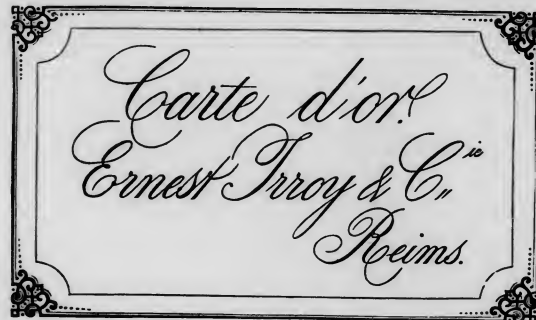 Carte d'or.
Ernest Irroy & C.ie
Reims.